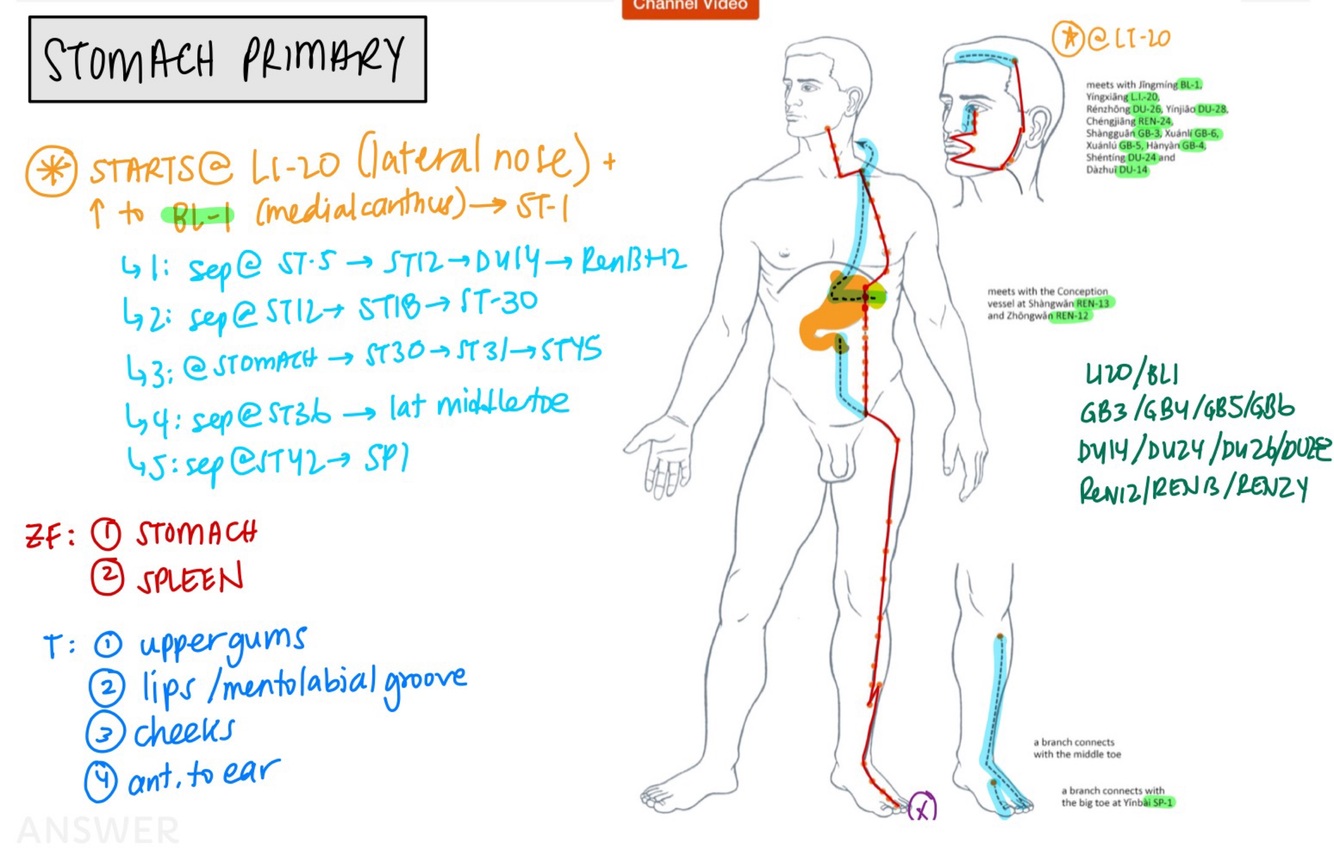 Channel Video
STOMACH PRIMARY
✱ STARTS @ LI-20 (lateral nose) +
↑ to BL-1 (medial canthus) → ST-1
↳ 1: sep @ ST-5 → ST12 → DU14 → Ren13+12
↳ 2: sep @ ST12 → ST18 → ST-30
↳ 3: @ STOMACH → ST30 → ST31 → ST45
↳ 4: sep @ ST36 → lat middle toe
↳ 5: sep @ ST42 → SP1
ZF: ① STOMACH
② SPLEEN
T: ① upper gums
② lips / mentolabial groove
③ cheeks
④ ant. to ear
ANSWER
@ LI-20
meets with Jīngmíng BL-1,
Yíngxiāng L.I.-20,
Rénzhōng DU-26, Yínjiāo DU-28,
Chéngjiāng REN-24,
Shàngguān GB-3, Xuánlí GB-6,
Xuánlú GB-5, Hànyàn GB-4,
Shéntíng DU-24 and
Dàzhuī DU-14
meets with the Conception
vessel at Shàngwǎn REN-13
and Zhōngwǎn REN-12
LI20/BL1
GB3/GB4/GB5/GB6
DU14/DU24/DU26/DU28
Ren12/REN13/REN24
a branch connects
with the middle toe
a branch connects with
the big toe at Yǐnbái SP-1
X